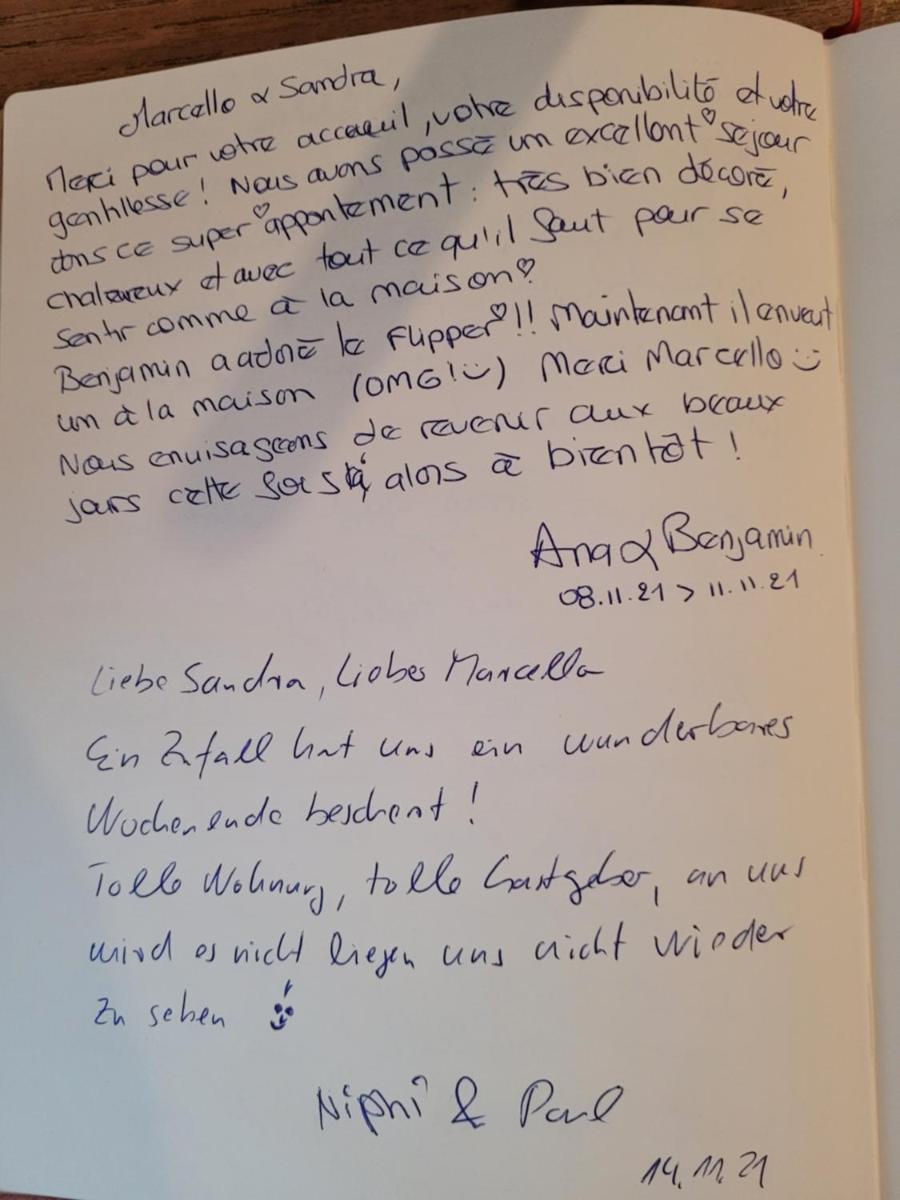 Marcello & Sandra,
Merci pour votre accueuil, votre disponibilité et votre
gentillesse ! Nous avons passé un excellent séjour
dans ce super appartement : très bien décoré,
chaleureux et avec tout ce qu'il faut pour se
sentir comme à la maison
Benjamin a adoré le Flipper !! Maintenant il en veut
un à la maison (OMG! :)) Merci Marcello :)
Nous envisageons de revenir aux beaux
jours cette fois alors à bientôt !
Ana & Benjamin
08.11.21 > 11.11.21
Liebe Sandra, Liebes Marcello
Ein Zufall hat uns ein wunderbares
Wochenende beschent !
Tolle Wohnung, tolle Gastgeber, an uns
wird es nicht liegen uns nicht wieder
zu sehen
Niphi & Paul
14.11.21